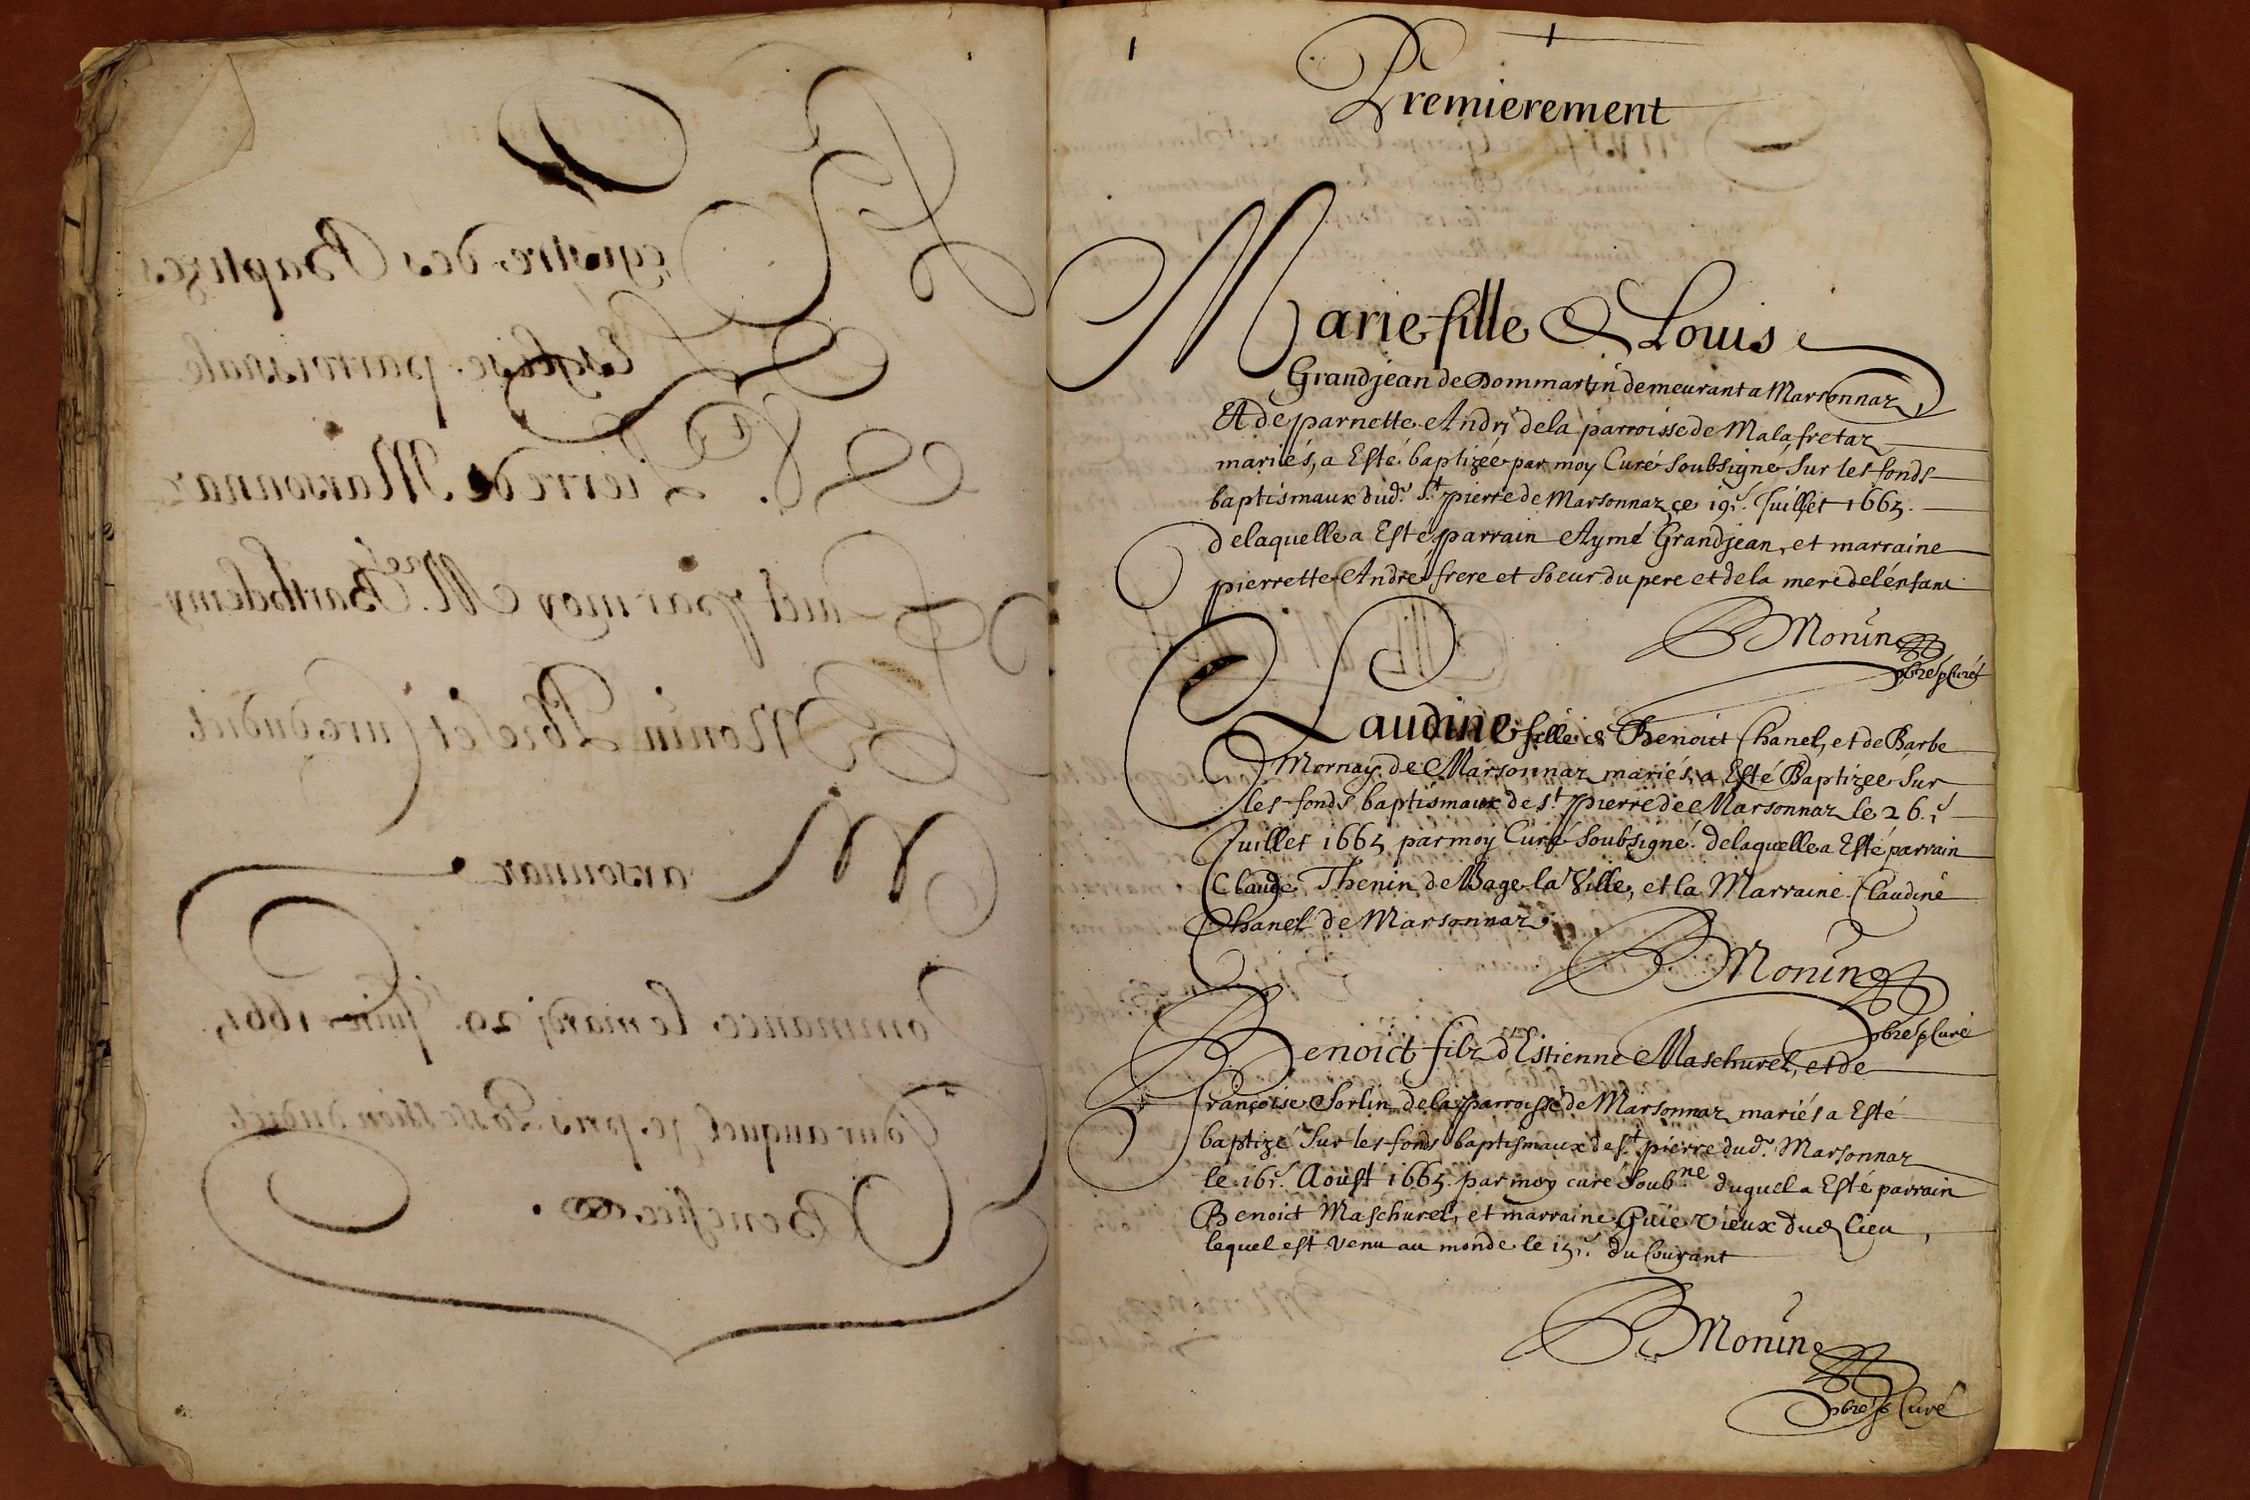 Registre des Baptizes
Esglise parroissiale
S.t Pierre de Marsonnaz
Faict par moy M.re Barthelemy
Monin Pbre et Curé dudict
Marsonnaz
Commancé le mardj 29. Juin 1665,
Jour auquel je pris Possession dudict
Benefice.
1
1
Premierement
Marie fille de Louis
Grandjean de Dommartin demeurant a Marsonnaz
Et de parnette Andrj de la parroisse de Malafretaz
mariés, a Esté baptizée par moy Curé soubsigné sur les fonds
baptismaux dud. S.t pierre de Marsonnaz ce 19. Juillet 1665.
de laquelle a Esté parrain Aymé Grandjean, et marraine
pierrette André frere et soeur du pere et de la mere de l'énfant
B Monin
pbre Curé
Claudine fille de Benoict Chanel, et de Barbe
Mornay de Marsonnaz mariés, a Esté Baptizée sur
les fonds baptismaux de s.t pierre de Marsonnaz le 26.
Juillet 1665 par moy Curé soubsigné. de laquelle a Esté parrain
Claude Thenin de Bage la Ville, et la Marraine Claudine
Chanel de Marsonnaz.
B Monin
pbre Curé
Benoict filz d'Estienne Maschurel, et de
Françoise Sorlin de la parroisse de Marsonnaz mariés a Esté
baptizé sur les fonds baptismaux de s.t pierre dud. Marsonnaz
le 16. Aoust 1665. par moy curé Soub.ne duquel a Esté parrain
Benoict Maschurel, et marraine Guie Vieux dud lieu,
lequel est venu au monde le 15. du Courant
B Monin
pbre Curé